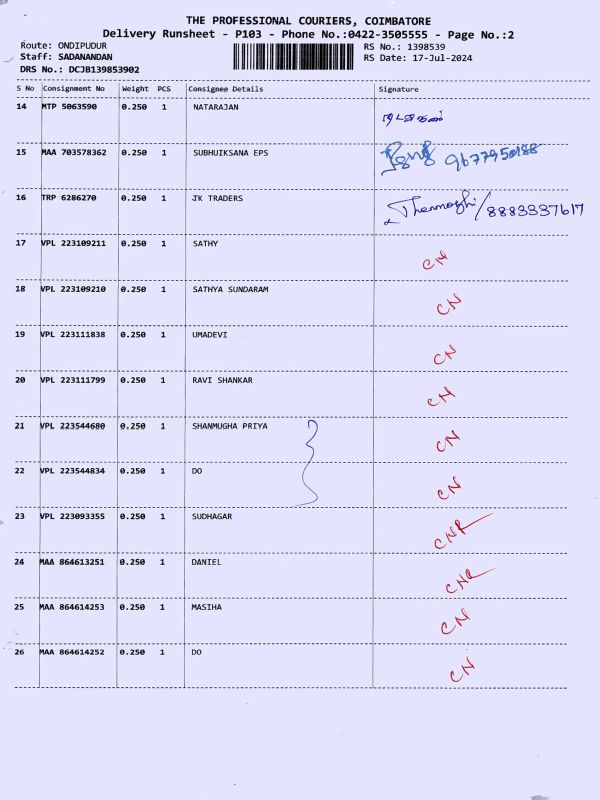 THE PROFESSIONAL COURIERS, COIMBATORE
Delivery Runsheet - P103 - Phone No.:0422-3505555 - Page No.:2
Route: ONDIPUDUR RS No.: 1398539
Staff: SADANANDAN RS Date: 17-Jul-2024
DRS No.: DCJB139853902
S No Consignment No Weight PCS Consignee Details Signature
14 MTP 5063590 0.250 1 NATARAJAN
15 MAA 703578362 0.250 1 SUBHUIKSANA EPS 9677950188
16 TRP 6286270 0.250 1 JK TRADERS /8883337617
17 VPL 223109211 0.250 1 SATHY CN
18 VPL 223109210 0.250 1 SATHYA SUNDARAM CN
19 VPL 223111838 0.250 1 UMADEVI CN
20 VPL 223111799 0.250 1 RAVI SHANKAR CN
21 VPL 223544680 0.250 1 SHANMUGHA PRIYA CN
22 VPL 223544834 0.250 1 DO CN
23 VPL 223093355 0.250 1 SUDHAGAR CNR
24 MAA 864613251 0.250 1 DANIEL CNR
25 MAA 864614253 0.250 1 MASIHA CN
26 MAA 864614252 0.250 1 DO CN